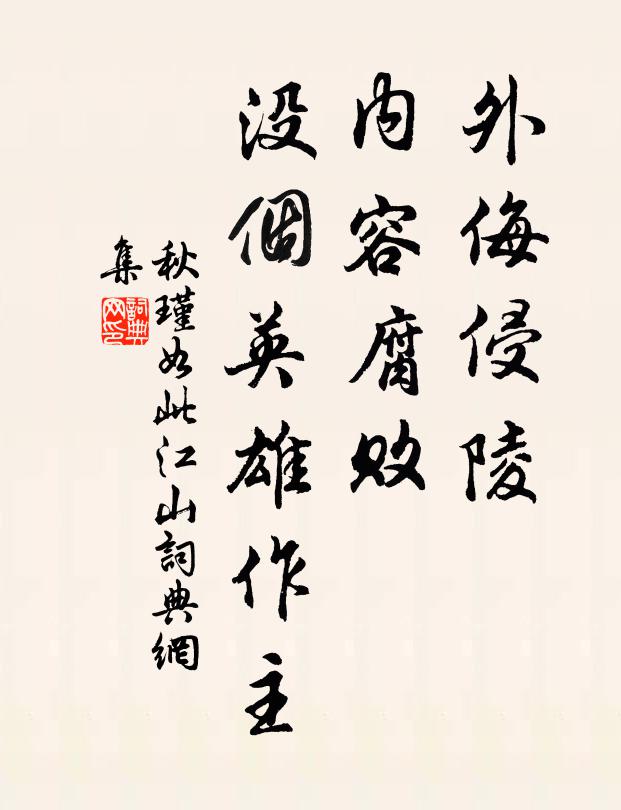 外侮侵陵
内容腐败
没個英雄作主
秋瑾如此江山詞典網
集
詞典网印